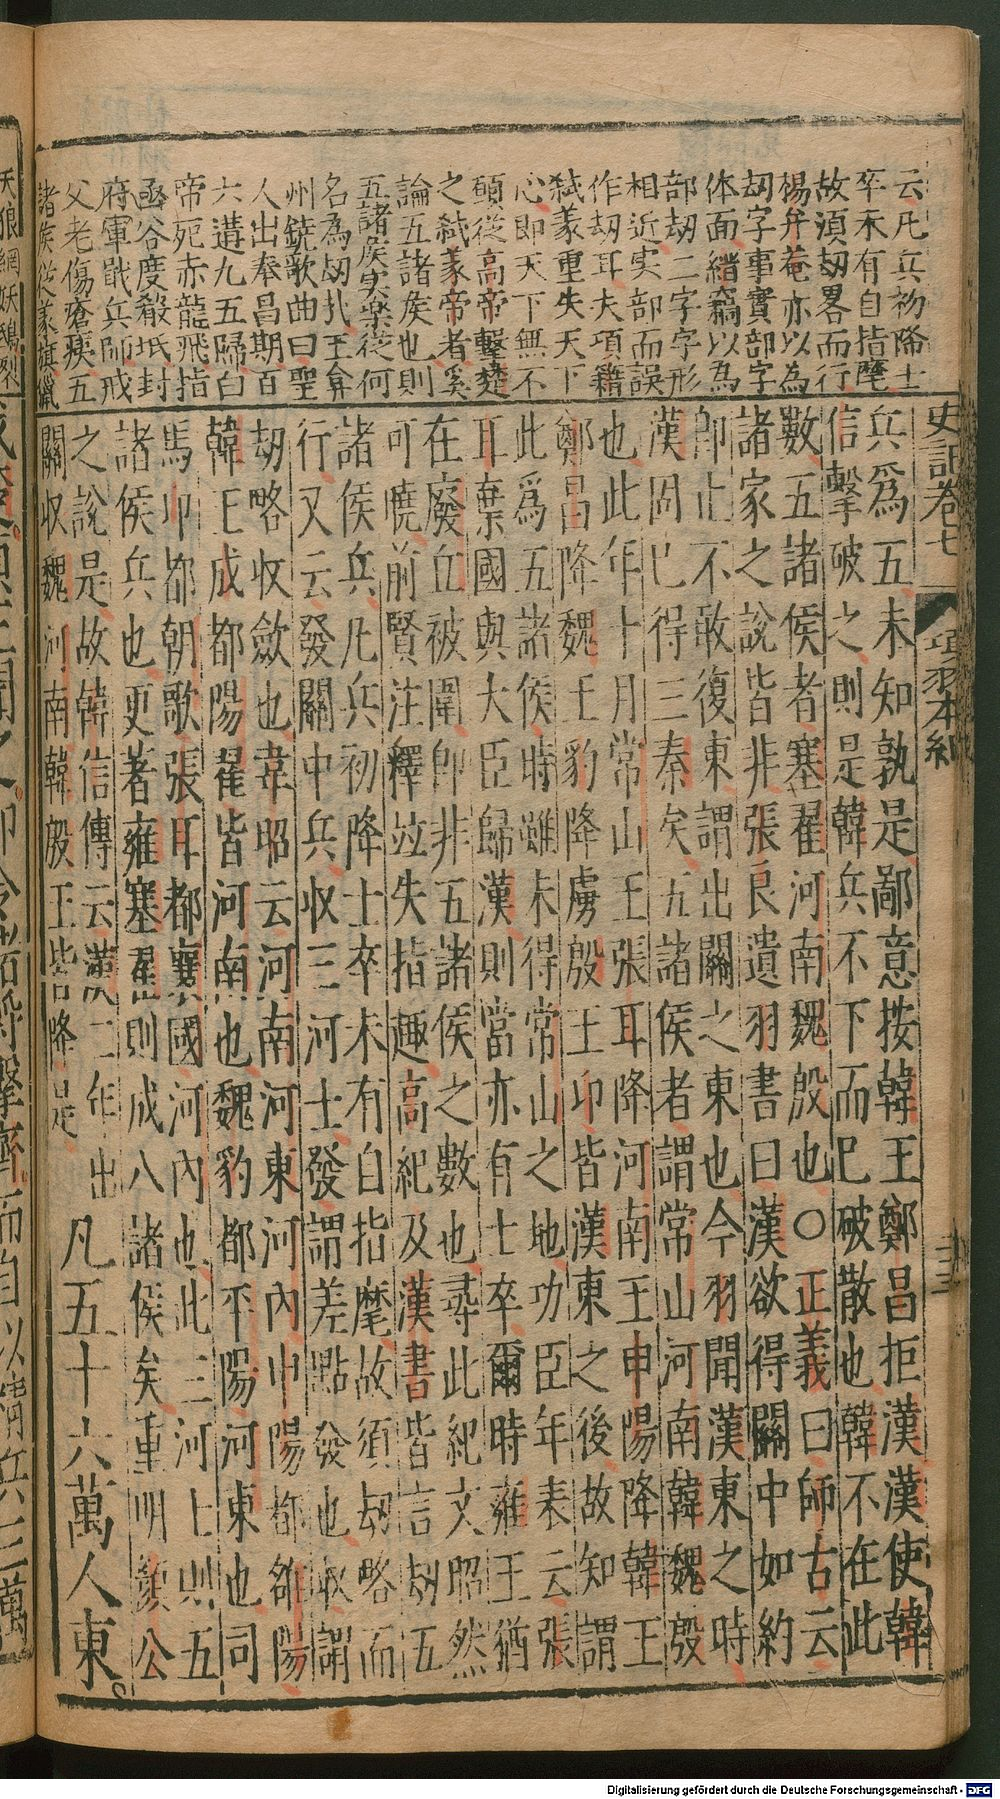 云凡兵初降士
卒未有自指麾
故須刼畧而行
楊升菴亦以為
刼字事實部字
体面繒稿以為
部刼二字字形
相近史部而誤
作刼耳夫項籍
弒義重失天下
心即天下無不
願從高帝擊楚
之弒義帝者奚
論五諸侯也則
五諸侯实樂從何
名為刼扎王弇
州鐃歌曲曰聖
人出奉昌期百
六遘九五歸白
帝死赤龍飛指
函谷度殽坻封
府軍戢兵師戒
父老傷瘡痍五
諸侯從義旗獵
史記卷七
項羽本紀
兵爲五未知孰是鄙意按韓王鄭昌拒漢漢使韓
信擊破之則是韓兵不下而巳破散也韓不在此
數五諸侯者塞翟河南魏殷也〇正義曰師古云
諸家之說皆非張良遺羽書曰漢欲得關中如約
卽止不敢復東謂出關之東也今羽聞漢東之時
漢固巳得三秦矣五諸侯者謂常山河南韓魏殷
也此年十月常山王張耳降河南王申陽降韓王
鄭昌降魏王豹降虜殷王卬皆漢東之後故知謂
此爲五諸侯時雖未得常山之地功臣年表云張
耳棄國與大臣歸漢則當亦有士卒爾時雍王猶
在廢丘被圍卽非五諸侯之數也尋此紀文昭然
可曉前賢注釋竝失指趣高紀及漢書皆言刼五
諸侯兵凡兵初降士卒未有自指麾故須刼略而
行又云發關中兵收三河士發謂差點發也收謂
刼略收斂也韋昭云河南河東河內申陽都雒陽
韓王成都陽翟皆河南也魏豹都平陽河東也司
馬卬都朝歌張耳都襄國河內也此三河士則五
諸侯兵也更著雍塞翟則成八諸侯矣重明顏公
之說是故韓信傳云漢二年出
關収魏河南韓殷王皆降是
凡五十六萬人東
天狼網妖鴟裂
Digitalisierung gefördert durch die Deutsche Forschungsgemeinschaft - DFG